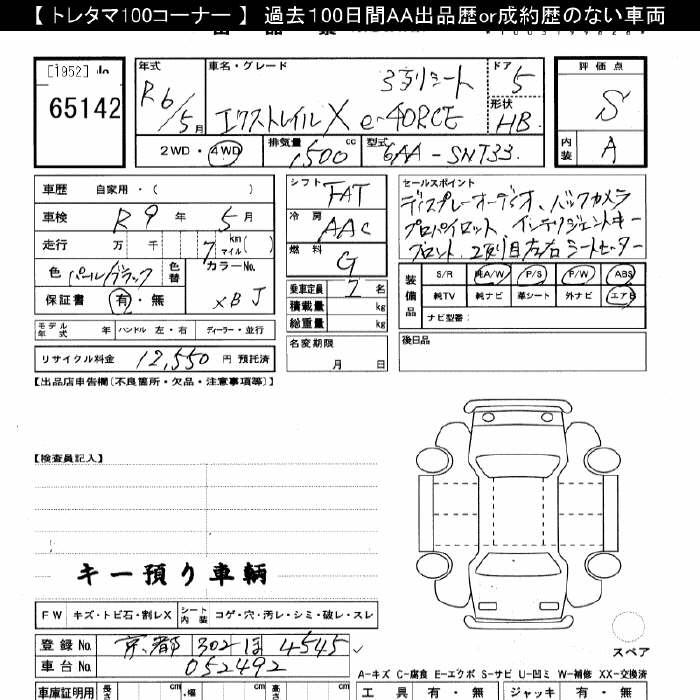 【 トレタマ100コーナー 】 過去100日間AA出品歴or成約歴のない車両
[1952]
65142
年式
R6/5月
車名・グレード
3列シート
エクストレイル X e-4ORCE
ドア
5
形状
HB
評価点
S
内装
A
2WD・4WD
排気量
1,500 cc
型式
6AA-SNT33
車歴 自家用・( )
車検 R9年 5月
走行 万 千 7 km マイル( )
色 パール/ブラック
色替
カラーNo.
XBJ
保証書 有・無
モデル年式 年
ハンドル 左・右
ディーラー・並行
リサイクル料金 12,550 円 預託済
シフト FAT
冷房 AAC
燃料 G
乗車定員 7 名
積載量 kg
総重量 kg
名変期限
月 日
セールスポイント
ディスプレーオーディオ、バックカメラ
プロパイロット、インテリジェントキー
フロント、2列目左右シートヒーター
装備品
S/R 純A/W P/S P/W ABS
純TV 純ナビ 革シート 外ナビ エアB
ナビ型番:
後日品
【出品店申告欄(不良箇所・欠品・注意事項等)】
【検査員記入】
キー預り車輌
FW キズ・トビ石・割レX
シート内装 コゲ・穴・汚レ・シミ・破レ・スレ
登録No. 京都 302 ほ 4545
車台No. 052492
車庫証明用 長さ cm 幅 cm 高さ cm
スペア
A-キズ C-腐食 E-エクボ S-サビ U-凹ミ W-補修 XX-交換済
工具 有・無 ジャッキ 有・無